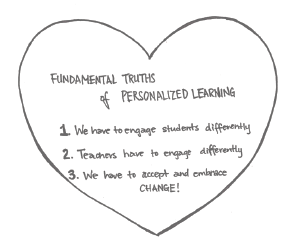 FUNDAMENTAL TRUTHS
of PERSONALIZED LEARNING
1. We have to engage students differently
2. Teachers have to engage differently
3. We have to accept and embrace
CHANGE!